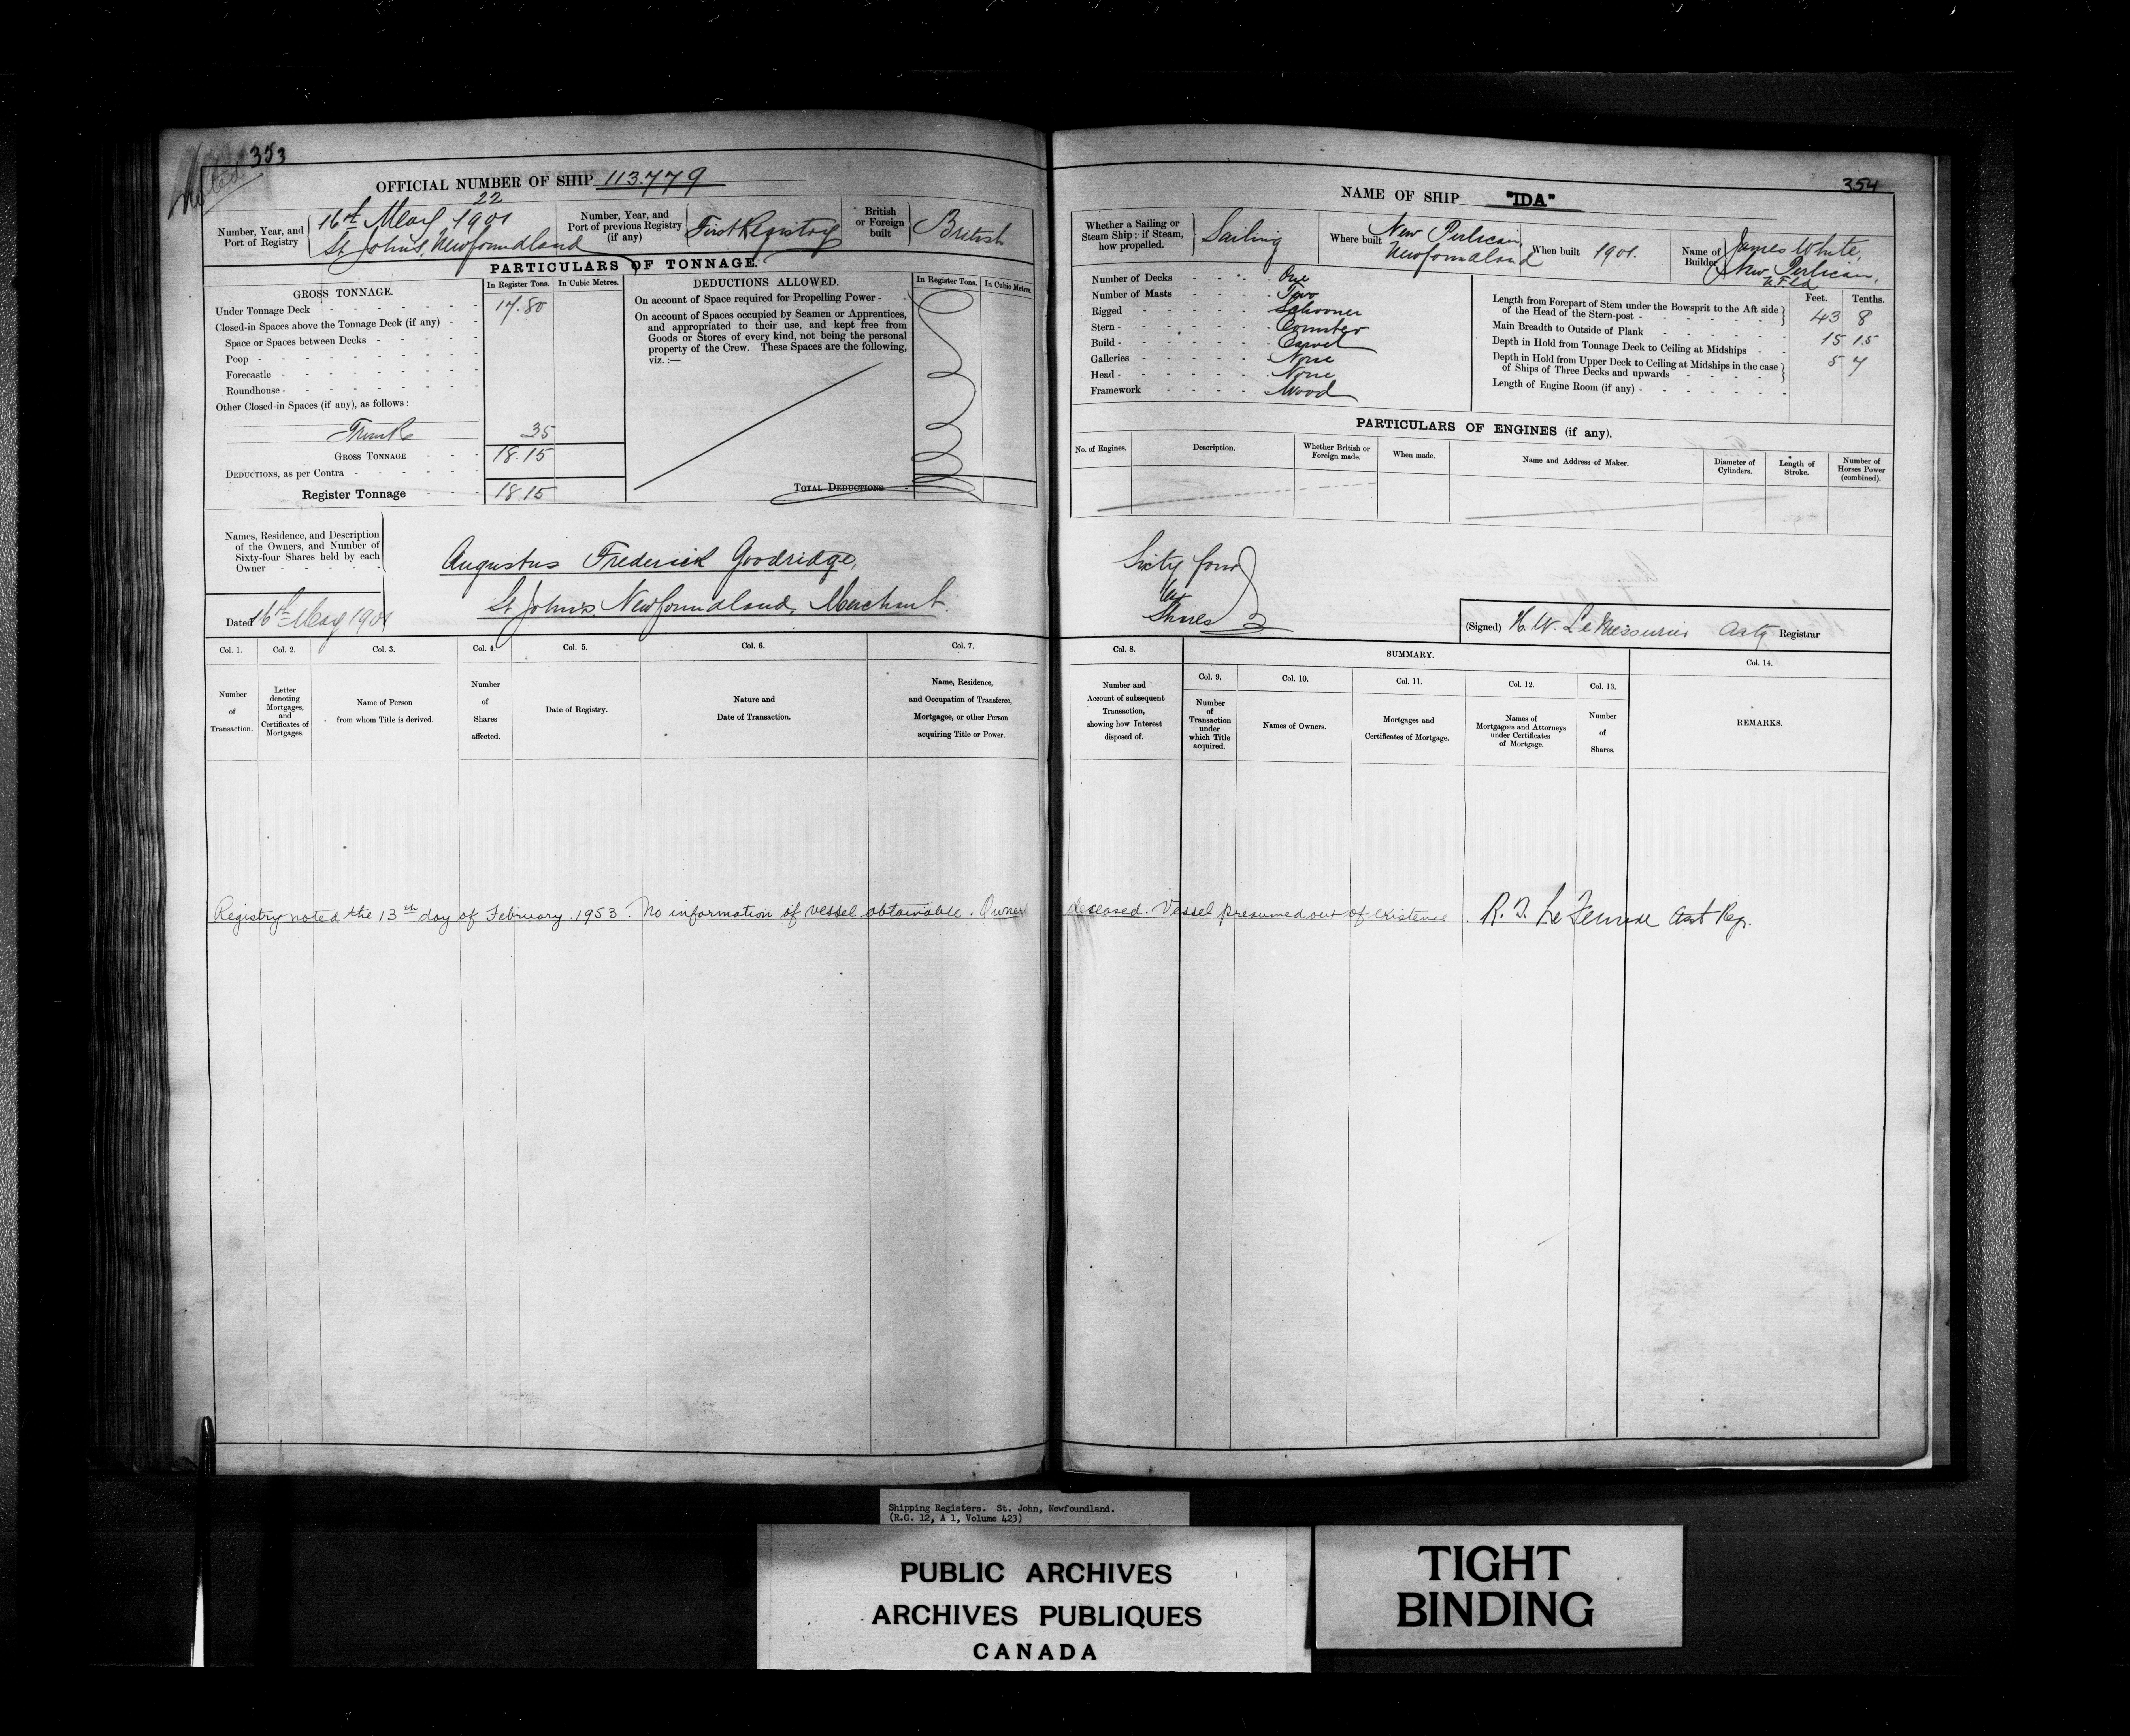 noted
353
OFFICIAL NUMBER OF SHIP 113.779
22
Number, Year, and Port of Registry
16th May 1901
St John's, Newfoundland
Number, Year, and Port of previous Registry (if any)
First Registry
British or Foreign built
British
PARTICULARS OF TONNAGE.
GROSS TONNAGE.
In Register Tons.
In Cubic Metres.
Under Tonnage Deck 17.80
Closed-in Spaces above the Tonnage Deck (if any)
Space or Spaces between Decks
Poop
Forecastle
Roundhouse
Other Closed-in Spaces (if any), as follows:
Trunk 35
GROSS TONNAGE 18.15
DEDUCTIONS, as per Contra
Register Tonnage 18.15
DEDUCTIONS ALLOWED.
In Register Tons.
In Cubic Metres.
On account of Space required for Propelling Power
On account of Spaces occupied by Seamen or Apprentices,
and appropriated to their use, and kept free from
Goods or Stores of every kind, not being the personal
property of the Crew. These Spaces are the following,
viz.:—
TOTAL DEDUCTIONS
Names, Residence, and Description
of the Owners, and Number of
Sixty-four Shares held by each
Owner
Dated 16th May 1901
Augustus Frederick Goodridge,
St John's, Newfoundland, Merchant.
Col. 1.
Number of Transaction.
Col. 2.
Letter denoting Mortgages, and Certificates of Mortgages.
Col. 3.
Name of Person from whom Title is derived.
Col. 4.
Number of Shares affected.
Col. 5.
Date of Registry.
Col. 6.
Nature and Date of Transaction.
Col. 7.
Name, Residence, and Occupation of Transferee, Mortgagee, or other Person acquiring Title or Power.
Registry noted the 13th day of February 1953. No information of vessel obtainable. Owner
354
NAME OF SHIP "IDA"
Whether a Sailing or Steam Ship; if Steam, how propelled.
Sailing
Where built
New Perlican, Newfoundland
When built 1901.
Name of Builder
James White,
New Perlican,
N.F.Ld
Number of Decks One
Number of Masts Two
Rigged Schooner
Stern Counter
Build Carvel
Galleries None
Head None
Framework Wood
Feet. Tenths.
Length from Forepart of Stem under the Bowsprit to the Aft side
of the Head of the Stern-post 43 8
Main Breadth to Outside of Plank 15 1.5
Depth in Hold from Tonnage Deck to Ceiling at Midships 5 4
Depth in Hold from Upper Deck to Ceiling at Midships in the case
of Ships of Three Decks and upwards
Length of Engine Room (if any)
PARTICULARS OF ENGINES (if any).
No. of Engines.
Description.
Whether British or Foreign made.
When made.
Name and Address of Maker.
Diameter of Cylinders.
Length of Stroke.
Number of Horses Power (combined).
Sixty four
Shares
(Signed) H. W. LeMessurier Actg Registrar
Col. 8.
Number and Account of subsequent Transaction, showing how Interest disposed of.
SUMMARY.
Col. 9.
Number of Transaction under which Title acquired.
Col. 10.
Names of Owners.
Col. 11.
Mortgages and Certificates of Mortgage.
Col. 12.
Names of Mortgagees and Attorneys under Certificates of Mortgage.
Col. 13.
Number of Shares.
Col. 14.
REMARKS.
deceased. Vessel presumed out of existence. Asst Reg.
Shipping Registers. St. John, Newfoundland.
(R.G. 12, A 1, Volume 423)
PUBLIC ARCHIVES
ARCHIVES PUBLIQUES
CANADA
TIGHT
BINDING